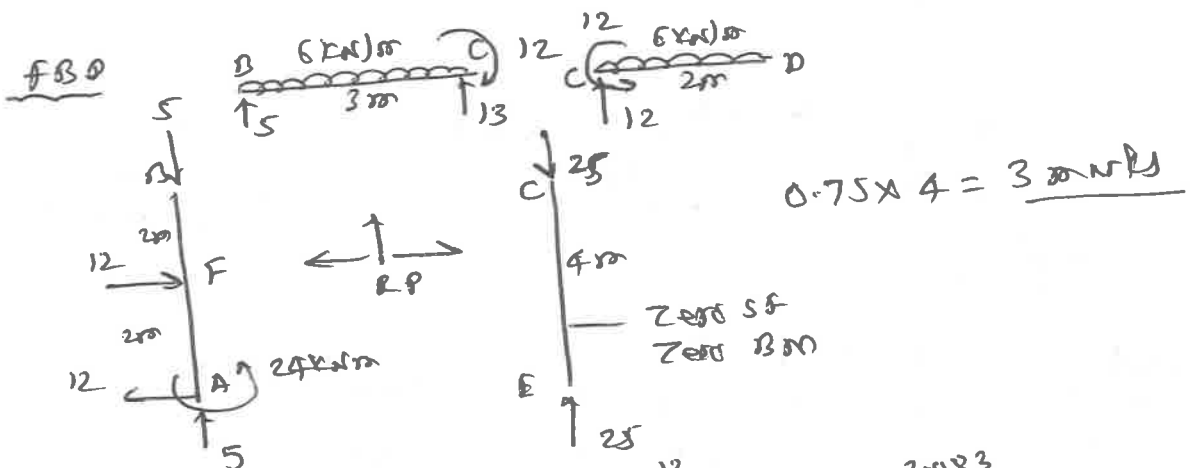 FBD
B 6 kN/m C 12
3m
5 13
12
C 6 kN/m D
2m
12
5
B
2m
12 F
2m
12 A 24 kNm
5
RP
C 25
4m
Zero SF
Zero BM
E
25
0.75 x 4 = 3 marks
12